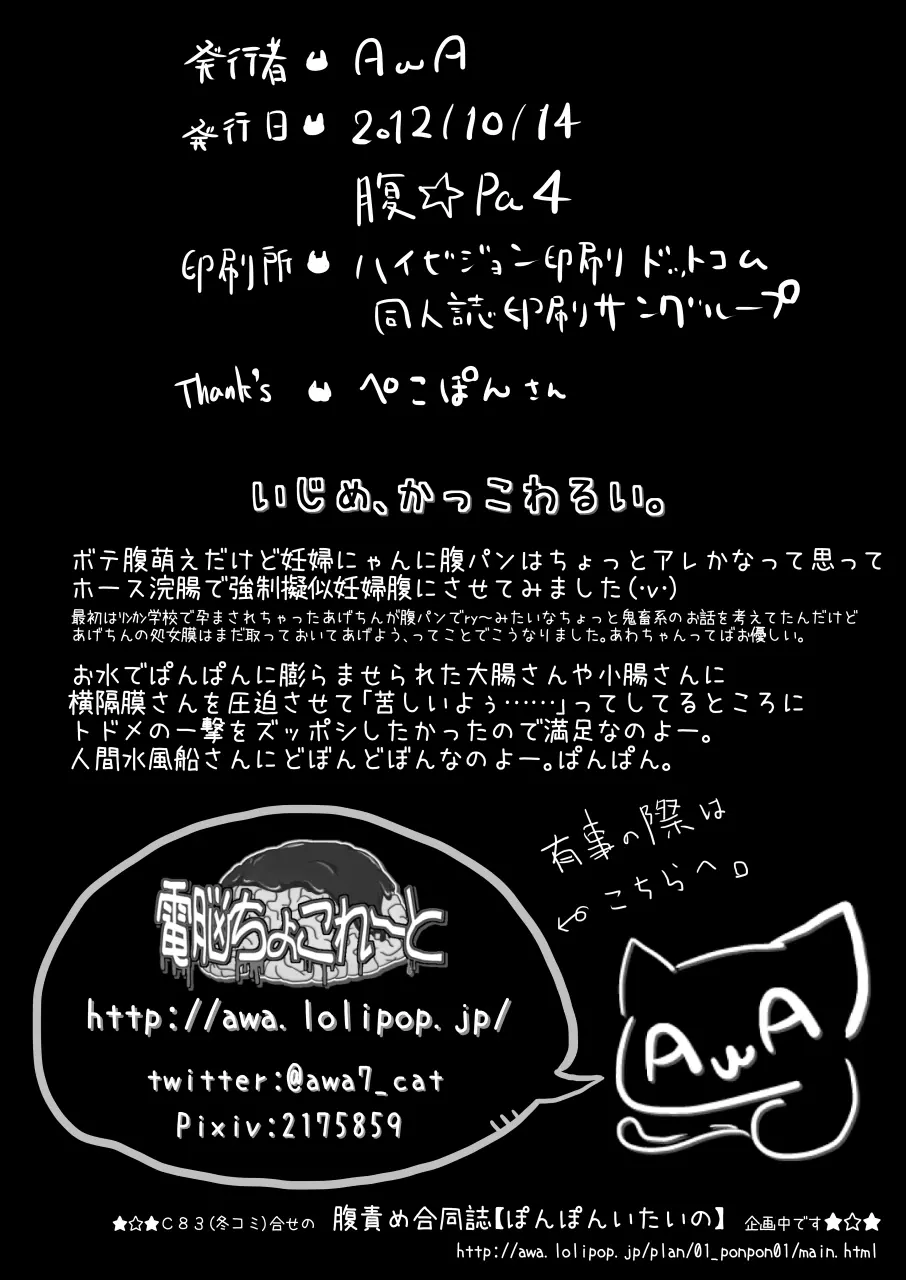 発行者 AwA
発行日 2012/10/14
腹☆Pa4
印刷所 ハイビジョン印刷ドットコム
同人誌印刷サングループ
Thank's ぺこぽんさん
いじめ、かっこわるい。
ボテ腹萌えだけど妊婦にゃんに腹パンはちょっとアレかなって思って
ホース浣腸で強制擬似妊婦腹にさせてみました(･v･)
最初はﾘﾝｶﾝ学校で孕まされちゃったあげちんが腹パンでry～みたいなちょっと鬼畜系のお話を考えてたんだけど
あげちんの処女膜はまだ取っておいてあげよう、ってことでこうなりました。あわちゃんってばお優しい。
お水でぱんぱんに膨らませられた大腸さんや小腸さんに
横隔膜さんを圧迫させて「苦しいよぅ……」ってしてるところに
トドメの一撃をズッポシしたかったので満足なのよー。
人間水風船さんにどぼんどぼんなのよー。ぱんぱん。
有事の際は
こちらへ。
電脳ちょこれ～と
http://awa.lolipop.jp/
twitter:@awa7_cat
Pixiv:2175859
AwA
★☆★C83(冬コミ)合せの 腹責め合同誌【ぽんぽんいたいの】 企画中です★☆★
http://awa.lolipop.jp/plan/01_ponpon01/main.html